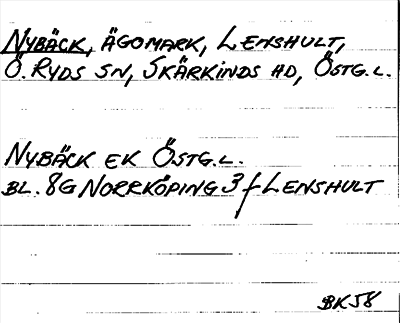 NYBÄCK, ÄGOMARK, LENSHULT,
Ö. RYDS SN, SKÄRKINDS HD, ÖSTG.L.
NYBÄCK EK ÖSTG.L.
BL. 8G NORRKÖPING 3f LENSHULT
BK58